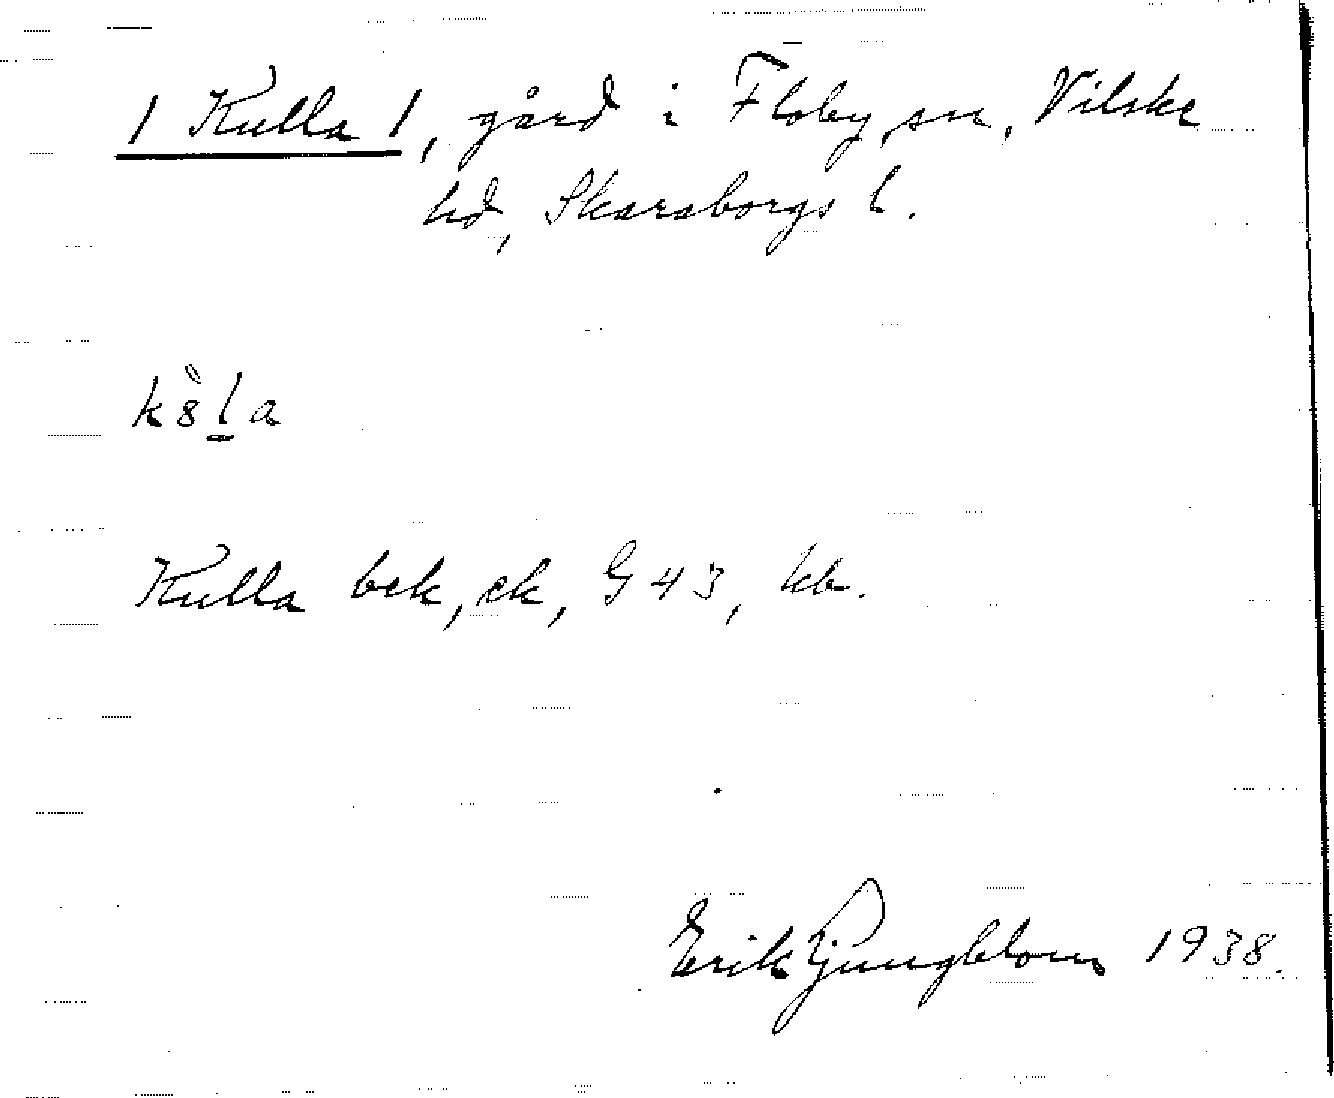 1 Kulla 1, gård i Floby sn, Vilske
hd, Skaraborgs l.
k8̀l̲a
Kulla bek, ek, G 43, kb.
Erik Ljungblom 1938.